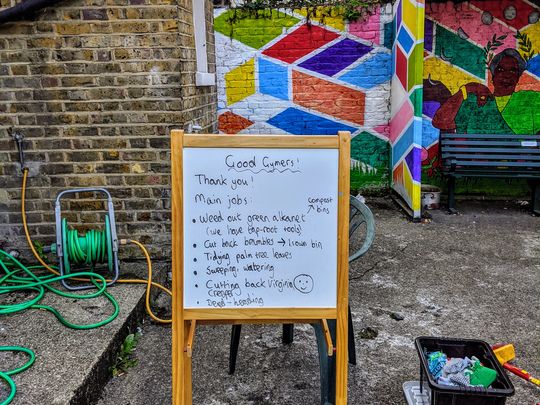 Good Gymers!
Thank you!
Main jobs:
compost
bins
• Weed out green alkanet
(we have tap-root tools)
• Cut back brambles → 1 sown bin
• Tidying palm tree leaves
• Sweeping, watering
• Cutting back Virginia
Creeper
• Dead-heading